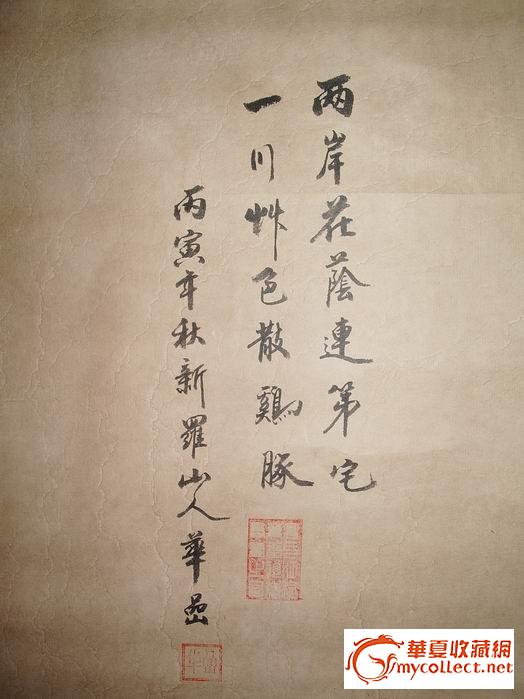 两岸花蔭連第宅
一川艸色散鷄豚
丙寅年秋新羅山人華喦
華夏收藏網
mycollect.net